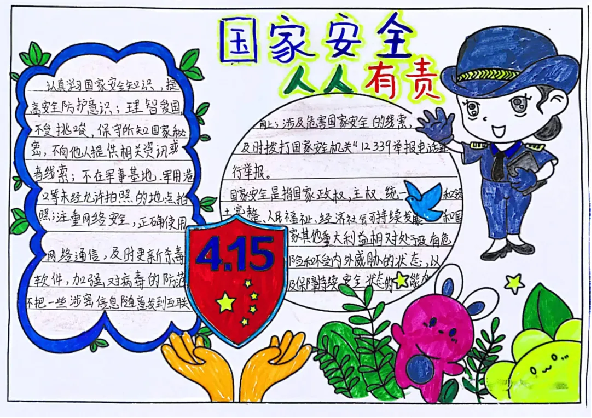 国家安全
人人有责
认真学习国家安全知识，提
高安全防护意识；理智爱国
不受挑唆，保守所知国家秘
密，不向他人提供相关资讯或
者线索；不在军事基地、军用港
口等未经允许拍照的地点拍
照；注重网络安全，正确使用
网络通信，及时更新杀毒
软件，加强对病毒的防范
不把一些涉密信息随意发到互联
网上；涉及危害国家安全的线索，
及时拨打国家安机关"12339举报电话进
行举报。
国家安全是指国家政权、主权、统一和
完整、人民福祉、经济社会可持续发展和国
家其他重大利益相对处于没有危
险和不受内外威胁的状态，以
及保障持续安全状态的能力
4.15